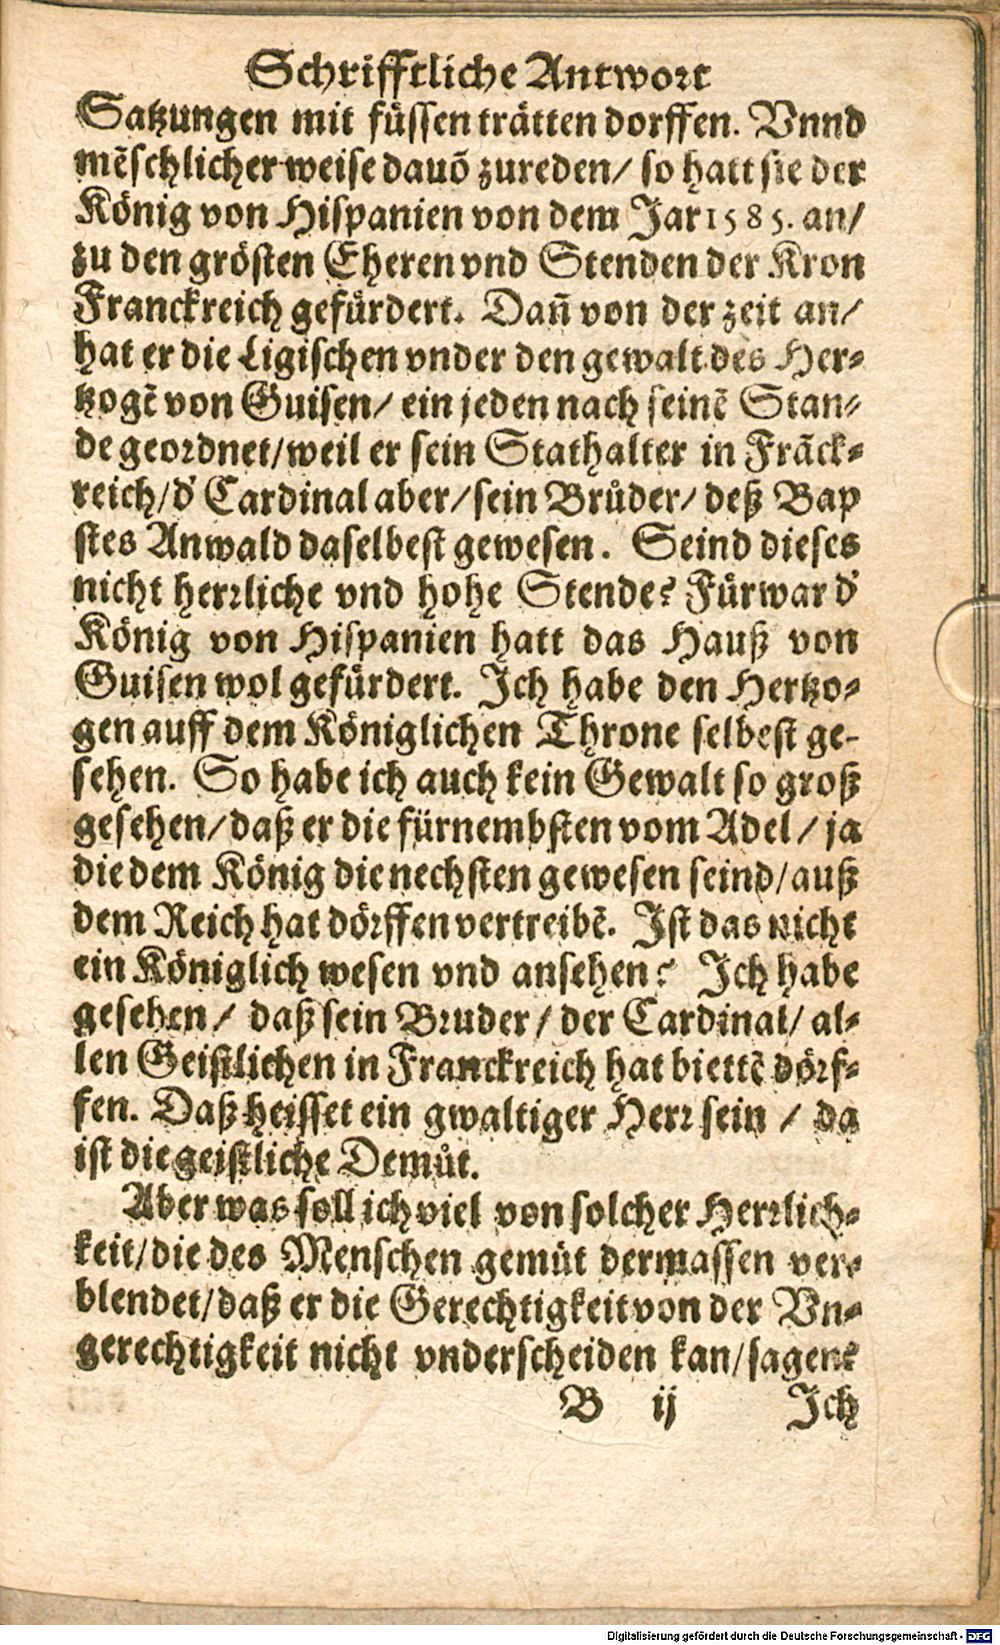 Schrifftliche Antwort
Satzungen mit füssen trätten dorffen. Vnnd
mẽschlicher weise dauõ zureden/ so hatt sie der
König von Hispanien von dem Jar 1585. an/
zu den grösten Eheren vnd Stenden der Kron
Franckreich gefürdert. Dañ von der zeit an/
hat er die Ligischen vnder den gewalt des Her-
tzogẽ von Guisen/ ein jeden nach seinẽ Stan-
de geordnet/ weil er sein Stathalter in Frãck-
reich/ d' Cardinal aber/ sein Brůder/ deß Bap
stes Anwald daselbest gewesen. Seind dieses
nicht herrliche vnd hohe Stende? Fürwar d'
König von Hispanien hatt das Hauß von
Guisen wol gefürdert. Jch habe den Hertzo-
gen auff dem Königlichen Throne selbest ge-
sehen. So habe ich auch kein Gewalt so groß
gesehen/ daß er die fürnembsten vom Adel/ ja
die dem König die nechsten gewesen seind/ auß
dem Reich hat dörffen vertreibẽ. Jst das nicht
ein Königlich wesen vnd ansehen? Jch habe
gesehen/ daß sein Bruder/ der Cardinal/ al-
len Geistlichen in Franckreich hat biettẽ dörf-
fen. Daß heisset ein gwaltiger Herr sein/ da
ist die geistliche Demůt.
Aber was soll ich viel von solcher Herrlich-
keit/ die des Menschen gemüt dermassen ver-
blendet/ daß er die Gerechtigkeit von der Vn-
gerechtigkeit nicht vnderscheiden kan/ sagen?
B ij Jch
Digitalisierung gefördert durch die Deutsche Forschungsgemeinschaft - DFG